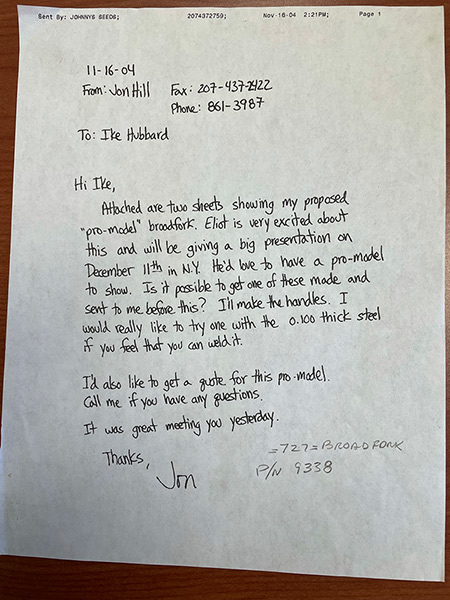 Sent By: JOHNNYS SEEDS; 2074372759; Nov-16-04 2:21PM; Page 1
11-16-04
From: Jon Hill Fax: 207-437-2422
Phone: 861-3987
To: Ike Hubbard
Hi Ike,
Attached are two sheets showing my proposed
"pro-model" broadfork. Eliot is very excited about
this and will be giving a big presentation on
December 11th in N.Y. He'd love to have a pro-model
to show. Is it possible to get one of these made and
sent to me before this? I'll make the handles. I
would really like to try one with the 0.100 thick steel
if you feel that you can weld it.
I'd also like to get a quote for this pro-model.
Call me if you have any questions.
It was great meeting you yesterday.
Thanks,
Jon
=727= BROADFORK
P/N 9338